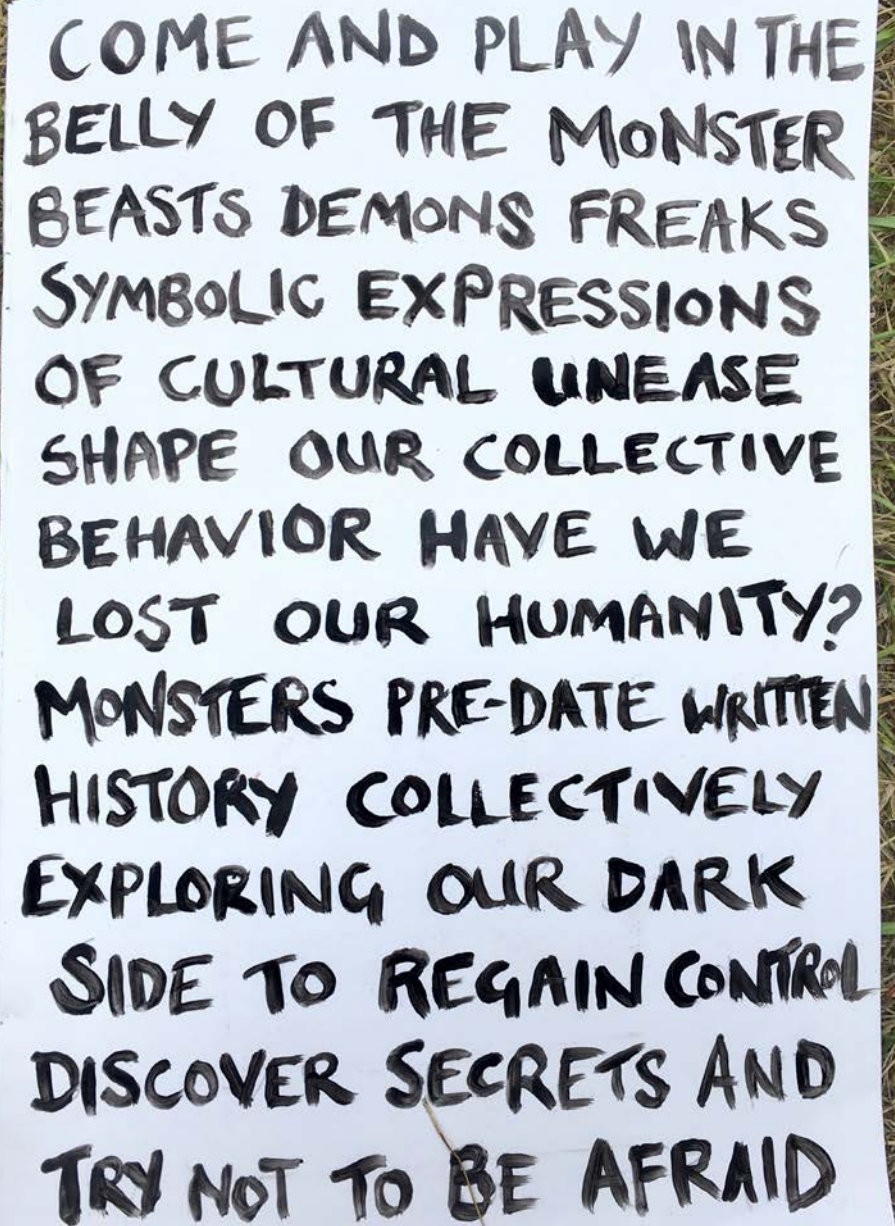 COME AND PLAY IN THE
BELLY OF THE MONSTER
BEASTS DEMONS FREAKS
SYMBOLIC EXPRESSIONS
OF CULTURAL UNEASE
SHAPE OUR COLLECTIVE
BEHAVIOR HAVE WE
LOST OUR HUMANITY?
MONSTERS PRE-DATE WRITTEN
HISTORY COLLECTIVELY
EXPLORING OUR DARK
SIDE TO REGAIN CONTROL
DISCOVER SECRETS AND
TRY NOT TO BE AFRAID